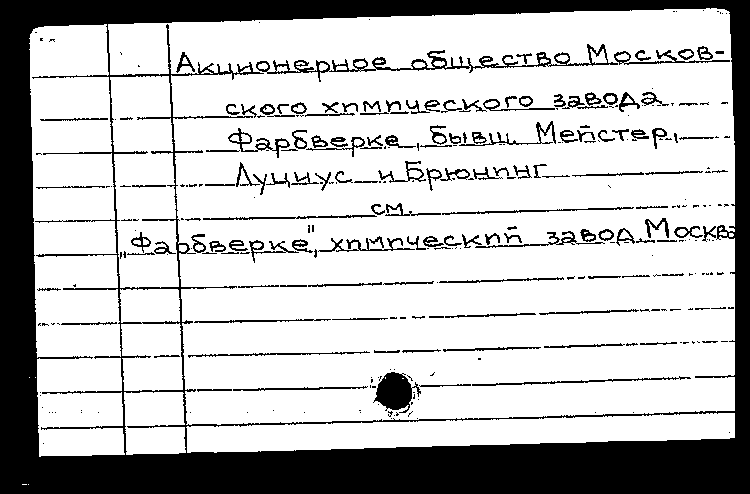 Акционерное общество Москов-
ского химического завода
Фарбверке, бывш. Мейстер,
Луциус и Брюнинг
см.
„Фарбверке", химический завод. Москва